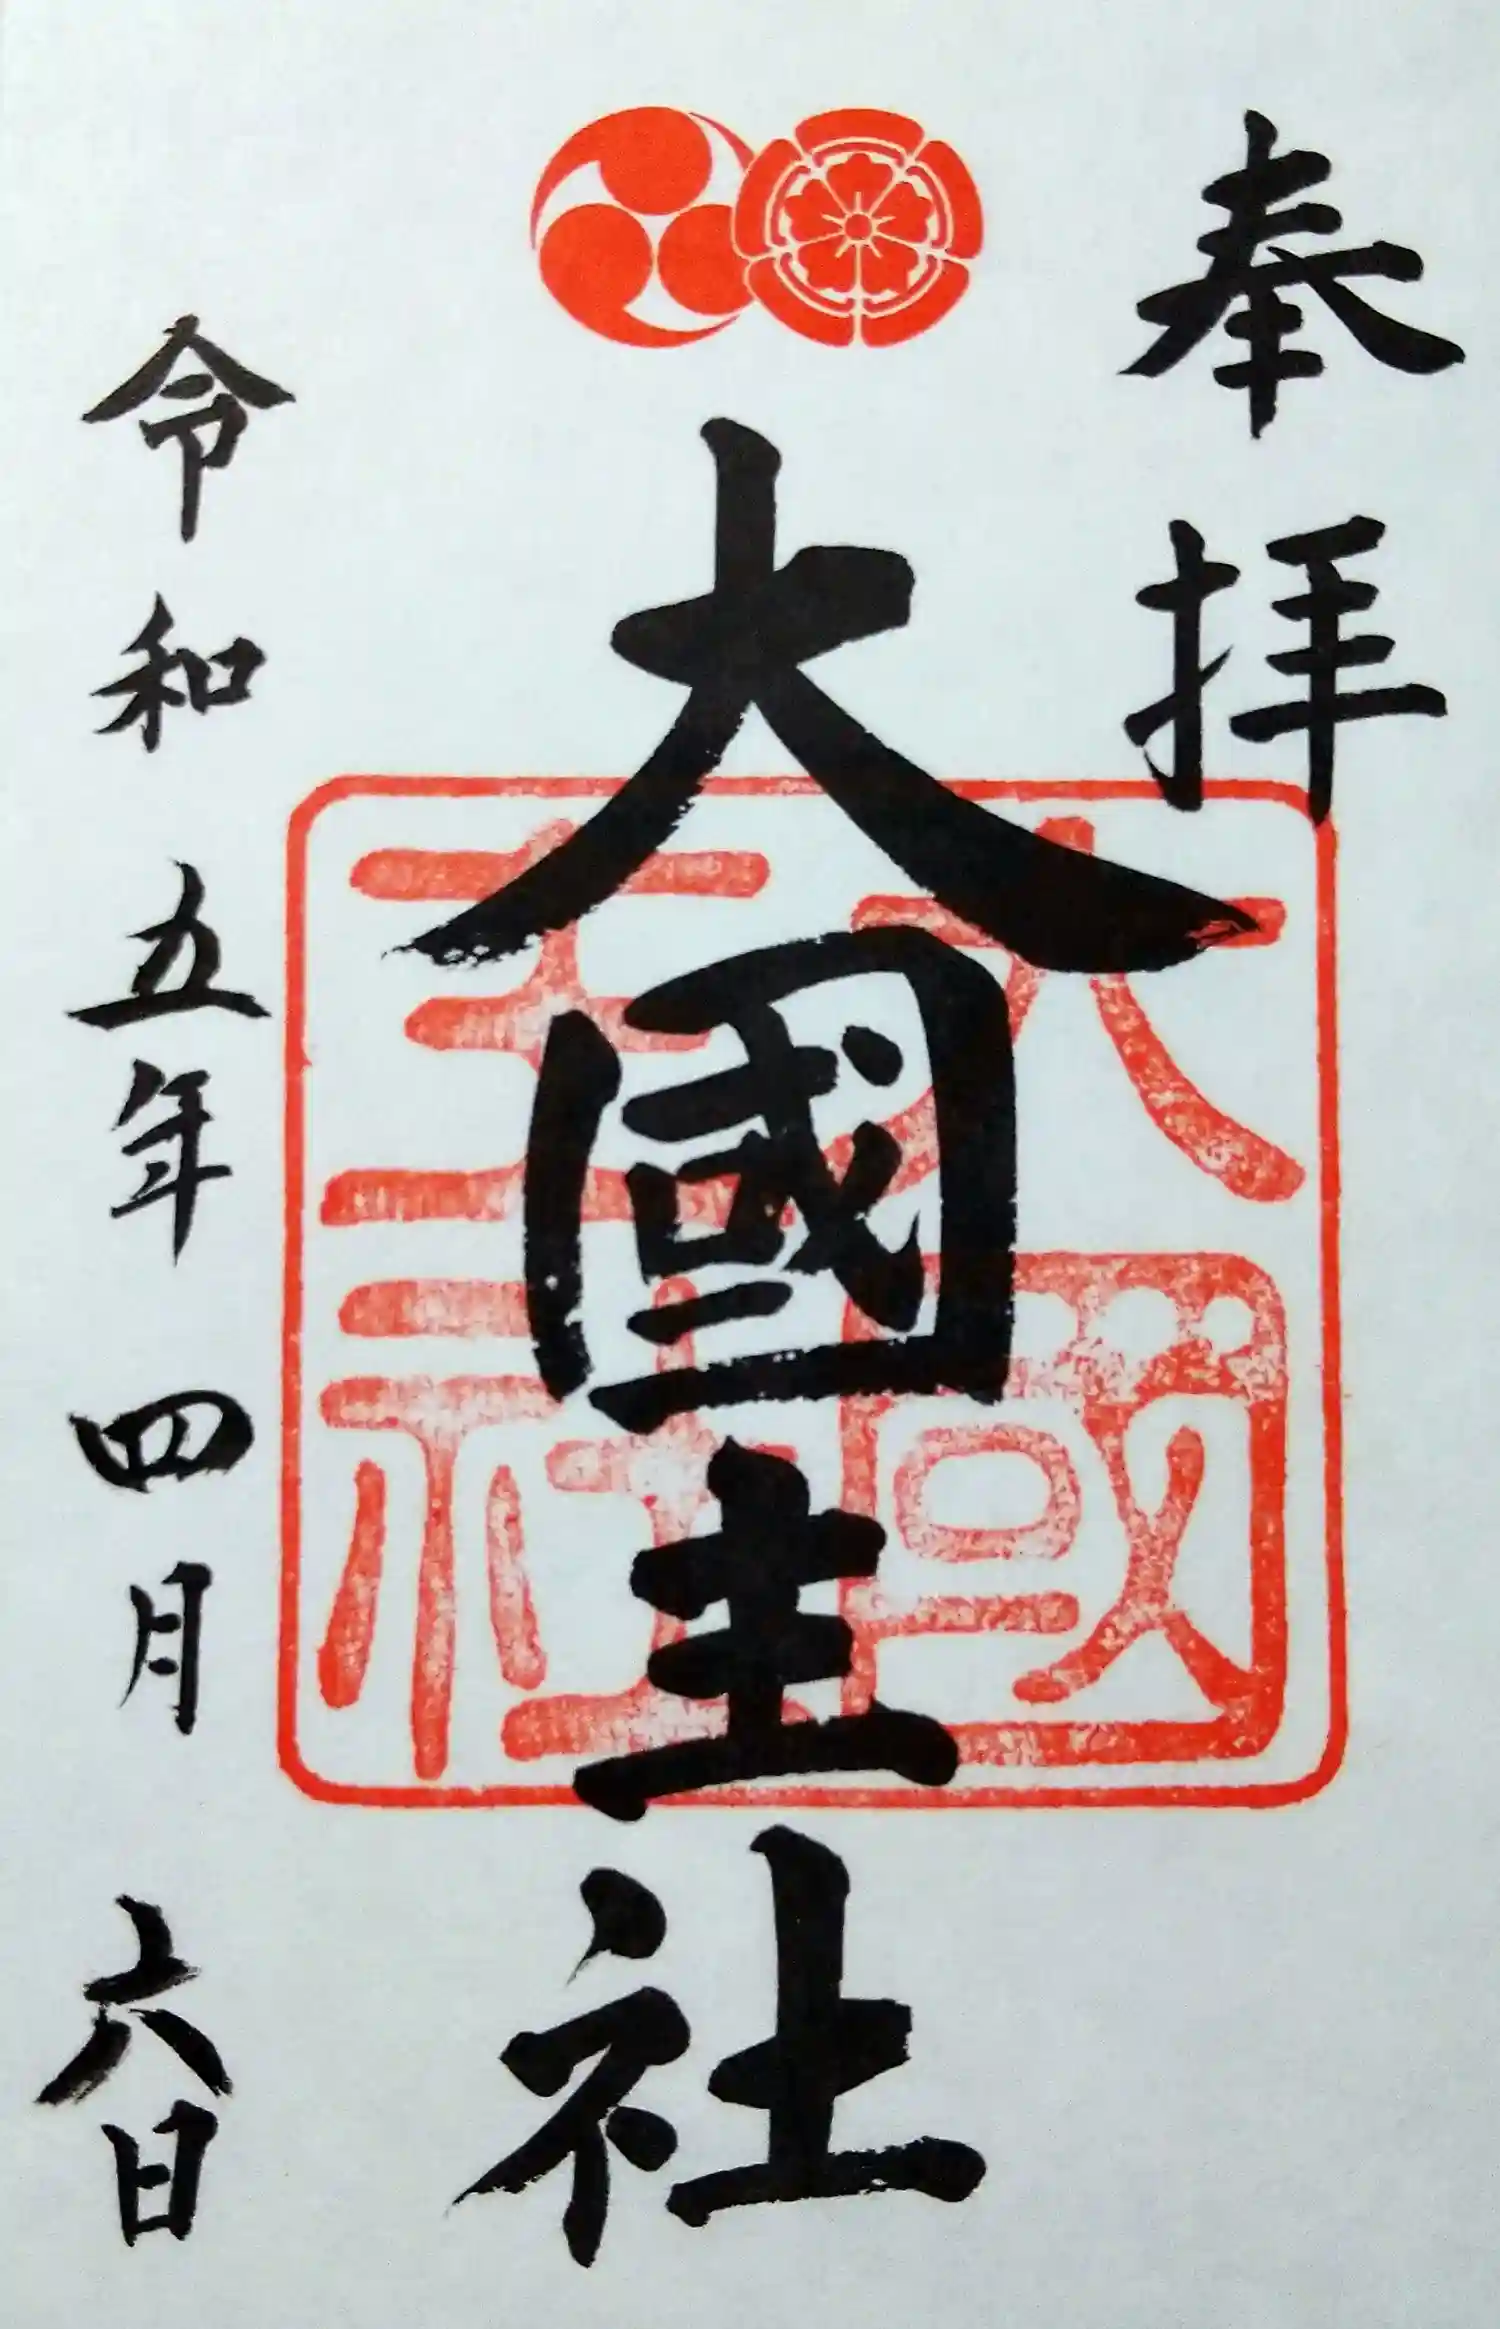 奉拝
大國主社
大國主社
令和五年四月六日